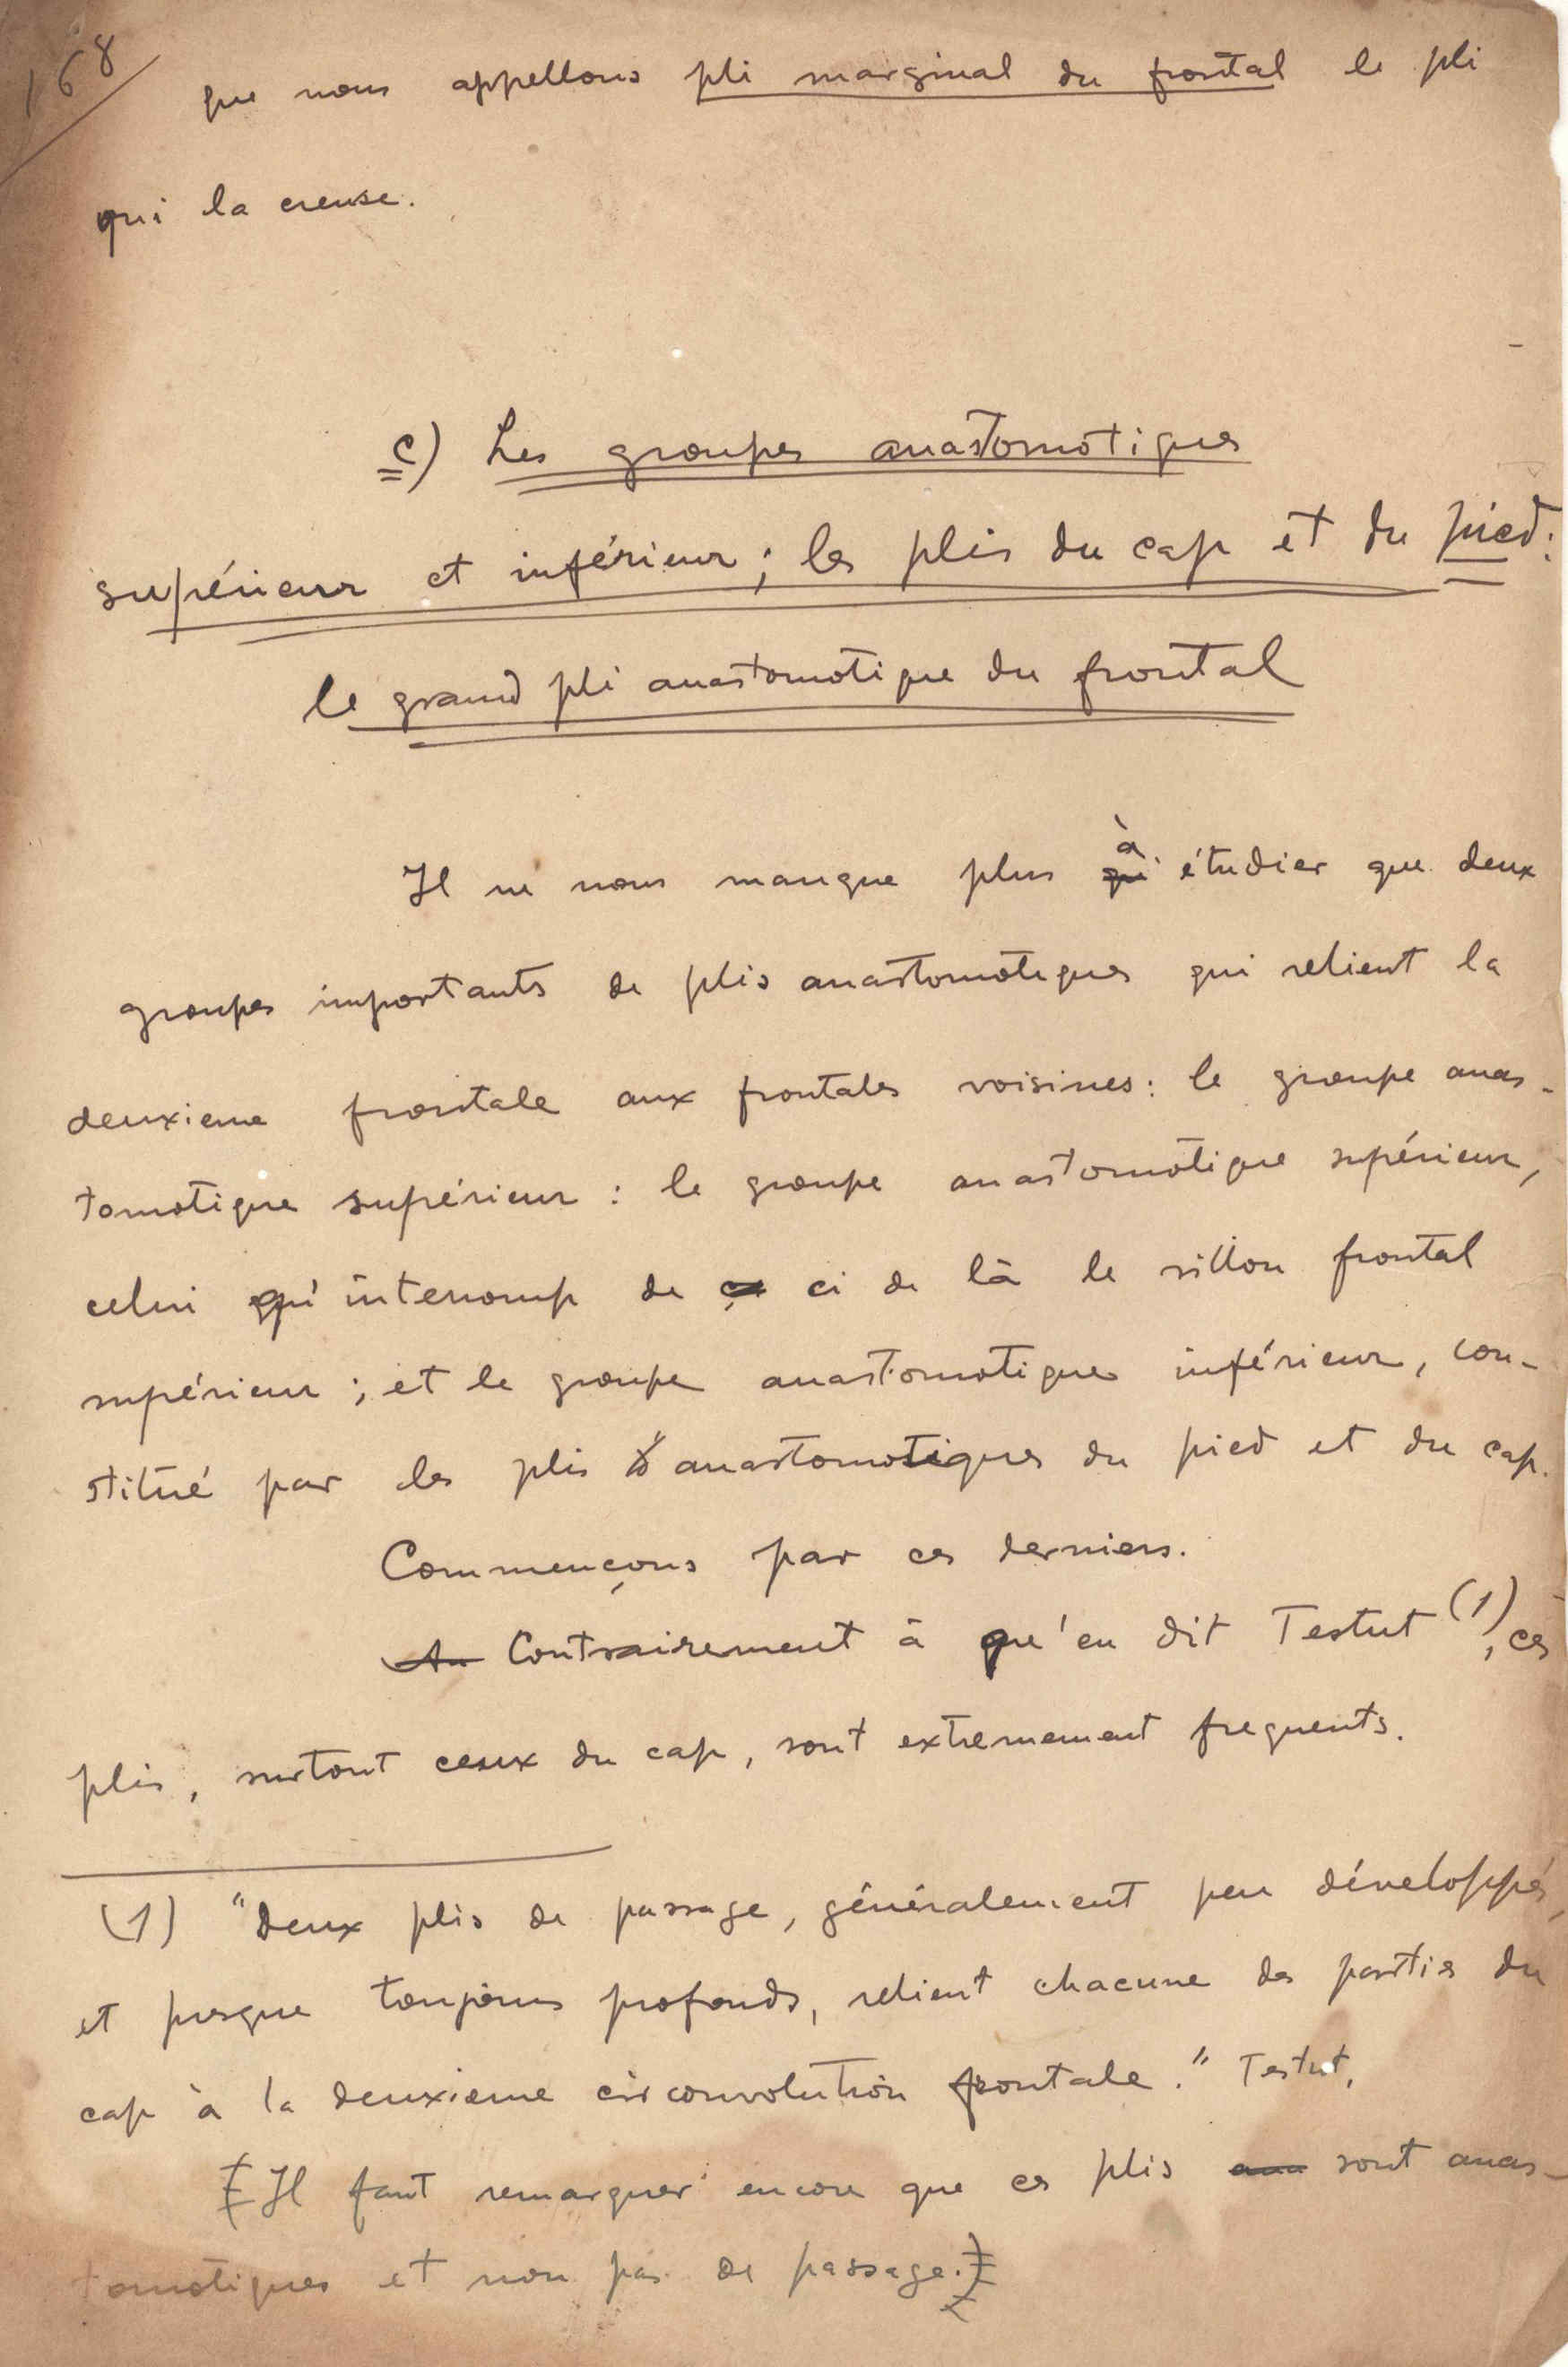 168
que nous appellons pli marginal du frontal le pli
qui la creuse.
c) Les groupes anastomotiques
supérieur et inférieur; les plis du cap et du pied:
le grand pli anastomotique du frontal
Il ne nous manque plus à étudier que deux
groupes importants de plis anastomotiques qui relient la
deuxieme frontale aux frontales voisines: le groupe anas-
tomotique supérieur: le groupe anastomotique supérieur,
celui qui interromp de ci de là le sillon frontal
supérieur; et le groupe anastomotique inférieur, con-
stitué par les plis anastomotiques du pied et du cap.
Commençons par ces derniers.
Contrairement à qu'en dit Testut (1), ces
plis, surtout ceux du cap, sont extremement frequents.
(1) "Deux plis de passage, généralement peu développés,
et presque toujours profonds, relient chacune des parties du
cap à la deuxieme circonvolution frontale." Testut.
[Il faut remarquer encore que ces plis sont anas-
tomotiques et non pas de passage.]